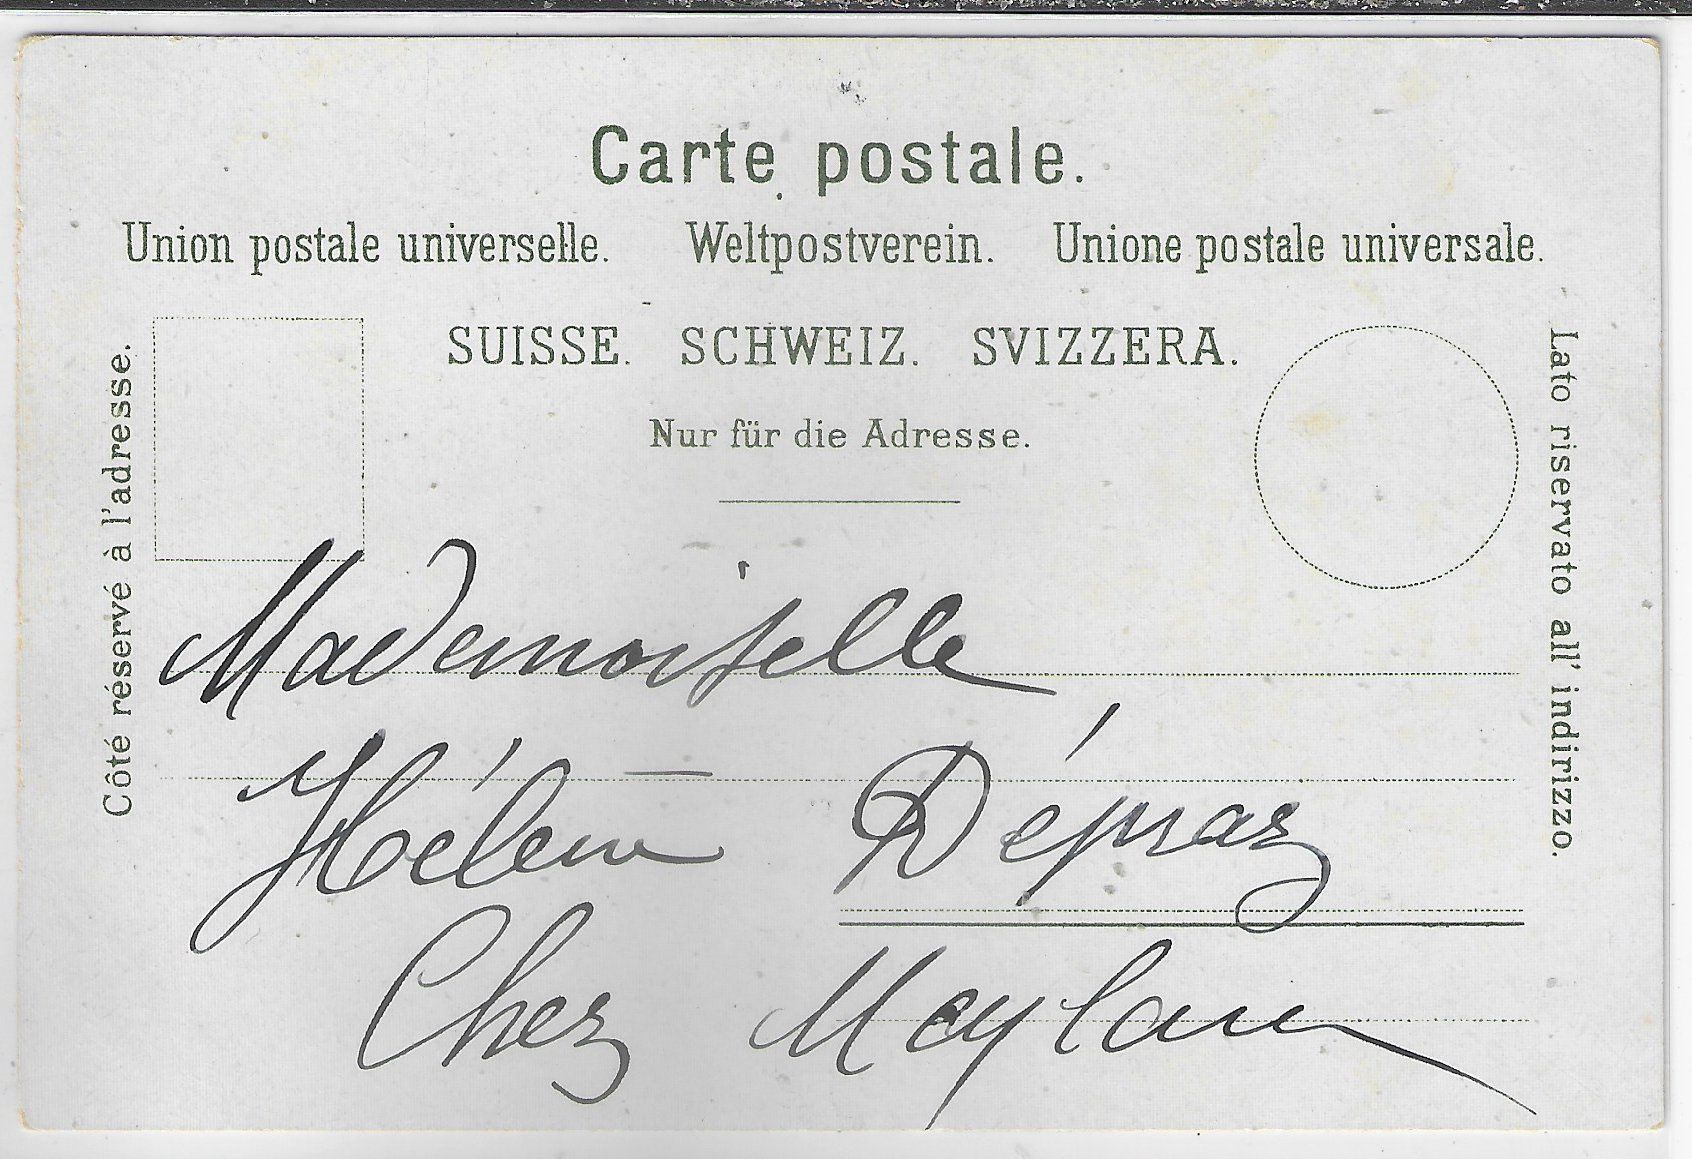 Carte postale.
Union postale universelle. Weltpostverein. Unione postale universale.
SUISSE. SCHWEIZ. SVIZZERA.
Nur für die Adresse.
Côté réservé à l'adresse.
Lato riservato all' indirizzo.
Mademoiselle
Hélène Dépraz
Chez Meylan